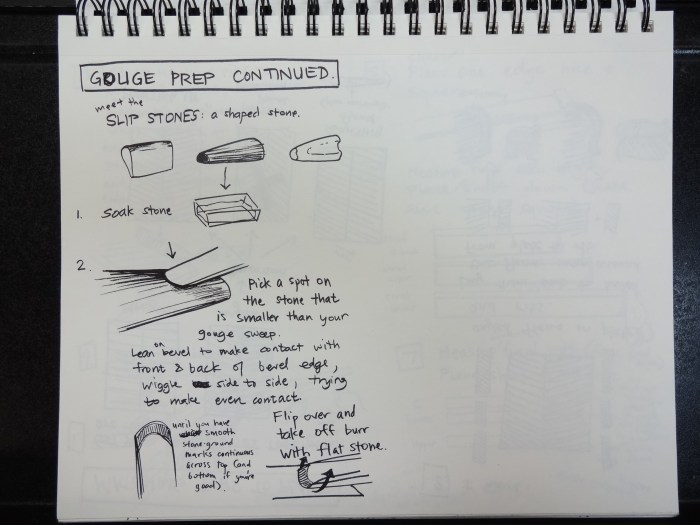 GOUGE PREP CONTINUED.
meet the
SLIP STONES: a shaped stone.
1. Soak stone
2.
Pick a spot on
the stone that
is smaller than your
gouge sweep.
Lean on bevel to make contact with
front & back of bevel edge,
wiggle side to side, trying
to make even contact.
until you have
smooth
stone-ground
marks continuous
across top (and
bottom if you're
good).
Flip over and
take off burr
with flat stone.